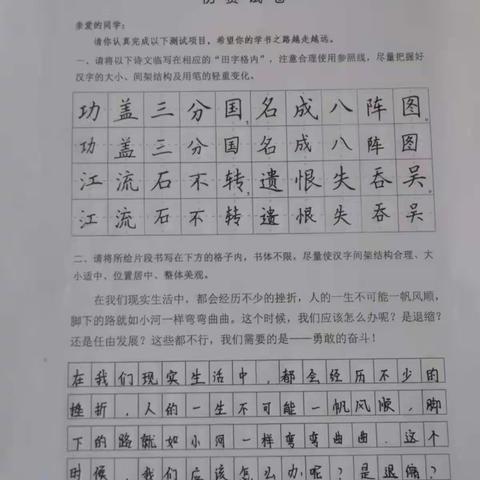 亲爱的同学：
请你认真完成以下测试项目，希望你的学书之路越走越远。
一、请将以下诗文临写在相应的“田字格内”，注意合理使用参照线，尽量把握好
汉字的大小、间架结构及用笔的轻重变化。
功盖三分国，名成八阵图
功盖三分国名成八阵图
江流石不转，遗恨失吞吴。
江流石不转遗恨失吞吴
二、请将所给片段书写在下方的格子内，书体不限。尽量使汉字间架结构合理、大
小适中、位置居中、整体美观。
在我们现实生活中，都会经历不少的挫折，人的一生不可能一帆风顺，
脚下的路就如小河一样弯弯曲曲。这个时候，我们应该怎么办呢？是退缩？
还是任由发展？这些都不行，我们需要的是——勇敢的奋斗！
在我们现实生活中，都会经历不少的
挫折，人的一生不可能一帆风顺，脚
下的路就如小河一样弯弯曲曲。这个
时候，我们应该怎么办呢？是退缩？